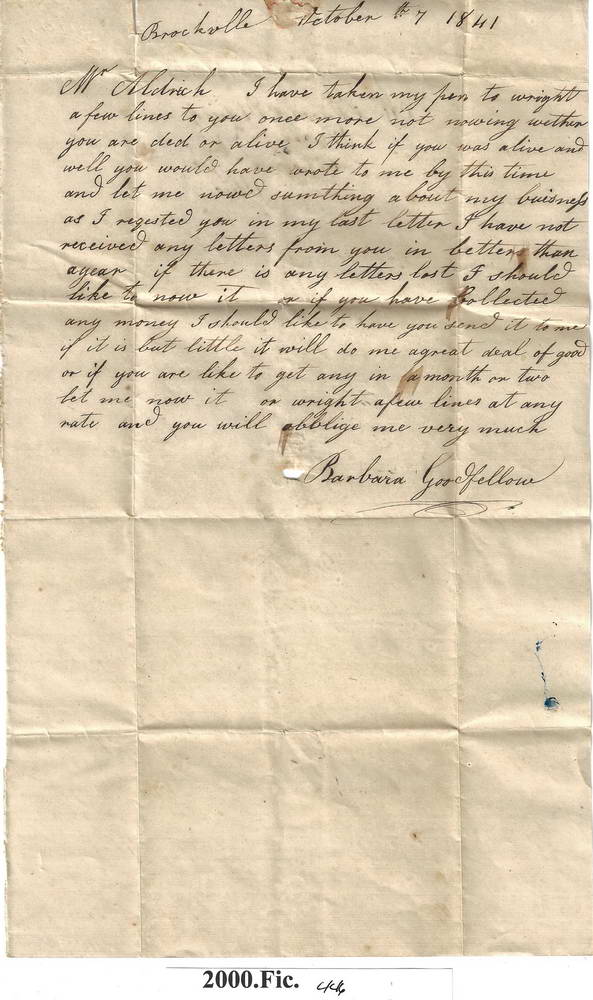 Brockville October th 7 1841
Mr Aldrich I have taken my pen to wright
a few lines to you once more not nowing wether
you are ded or alive I think if you was alive and
well you would have wrote to me by this time
and let me nowd sumthing about my buisness
as I regested you in my last letter I have not
received any letters from you in better than
a year if there is any letters lost I should
like to now it or if you have collected
any money I should like to have you send it to me
if it is but little it will do me a great deal of good
or if you are like to get any in a month or two
let me now it or wright a few lines at any
rate and you will obblige me very much
Barbara Goodfellow
2000.Fic. 446